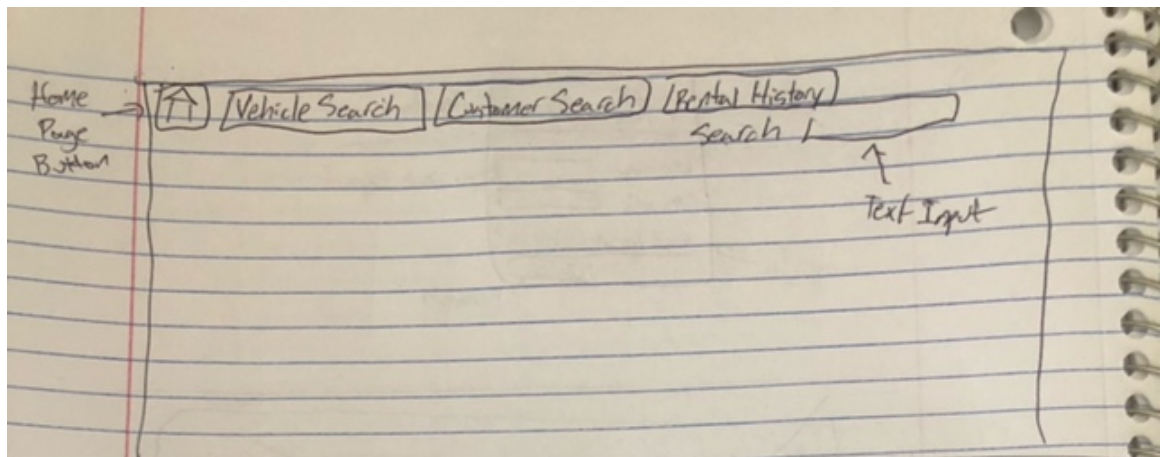 Home
Page
Button
Vehicle Search
Customer Search
Rental History
Search
Text Input